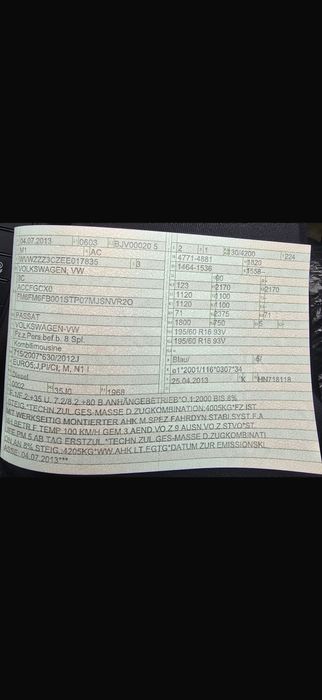 04.07.2013 0603 BJV00020 5
M1 AC
WVWZZZ3CZEE017835 3
VOLKSWAGEN, VW
3C
ACCFGCX0
FM6FM6FB001STP07MJSNVR2O
PASSAT
VOLKSWAGEN-VW
Fz.z.Pers.bef.b. 8 Spl.
Kombilimousine
715/2007*630/2012J
EURO5;J,PI/CI; M, N1 I
Diesel
0002 35J0 1968
2 1 /4200 224
4771-4881 1820
1464-1536 1558
90
123 2170 2170
1120 1100
1120 1100
71 2375 71
1800 750 5
195/60 R16 93V
195/60 R16 93V
Blau/
e1*2001/116*0307*34
25.04.2013 K HN718118
F.2:+35 U. 7.2/8.2:+80 B.ANHÄNGEBETRIEB*O.1:2000 BIS 8%
STEIG.*TECHN.ZUL.GES-MASSE D.ZUGKOMBINATION:4005KG*FZ.IST
MIT WERKSEITIG MONTIERTER AHK M.SPEZ.FAHRDYN.STABI.SYST.F.A
TEMP.100 KM/H GEM.3.AEND.VO.Z.9 AUSN.VO.Z.STVO*ST.
AB TAG ERSTZUL.*TECHN.ZUL.GES-MASSE D.ZUGKOMBINATI
AN 8% STEIG.:4205KG*WW.AHK LT.EGTG*DATUM ZUR EMISSIONSKL
04.07.2013***